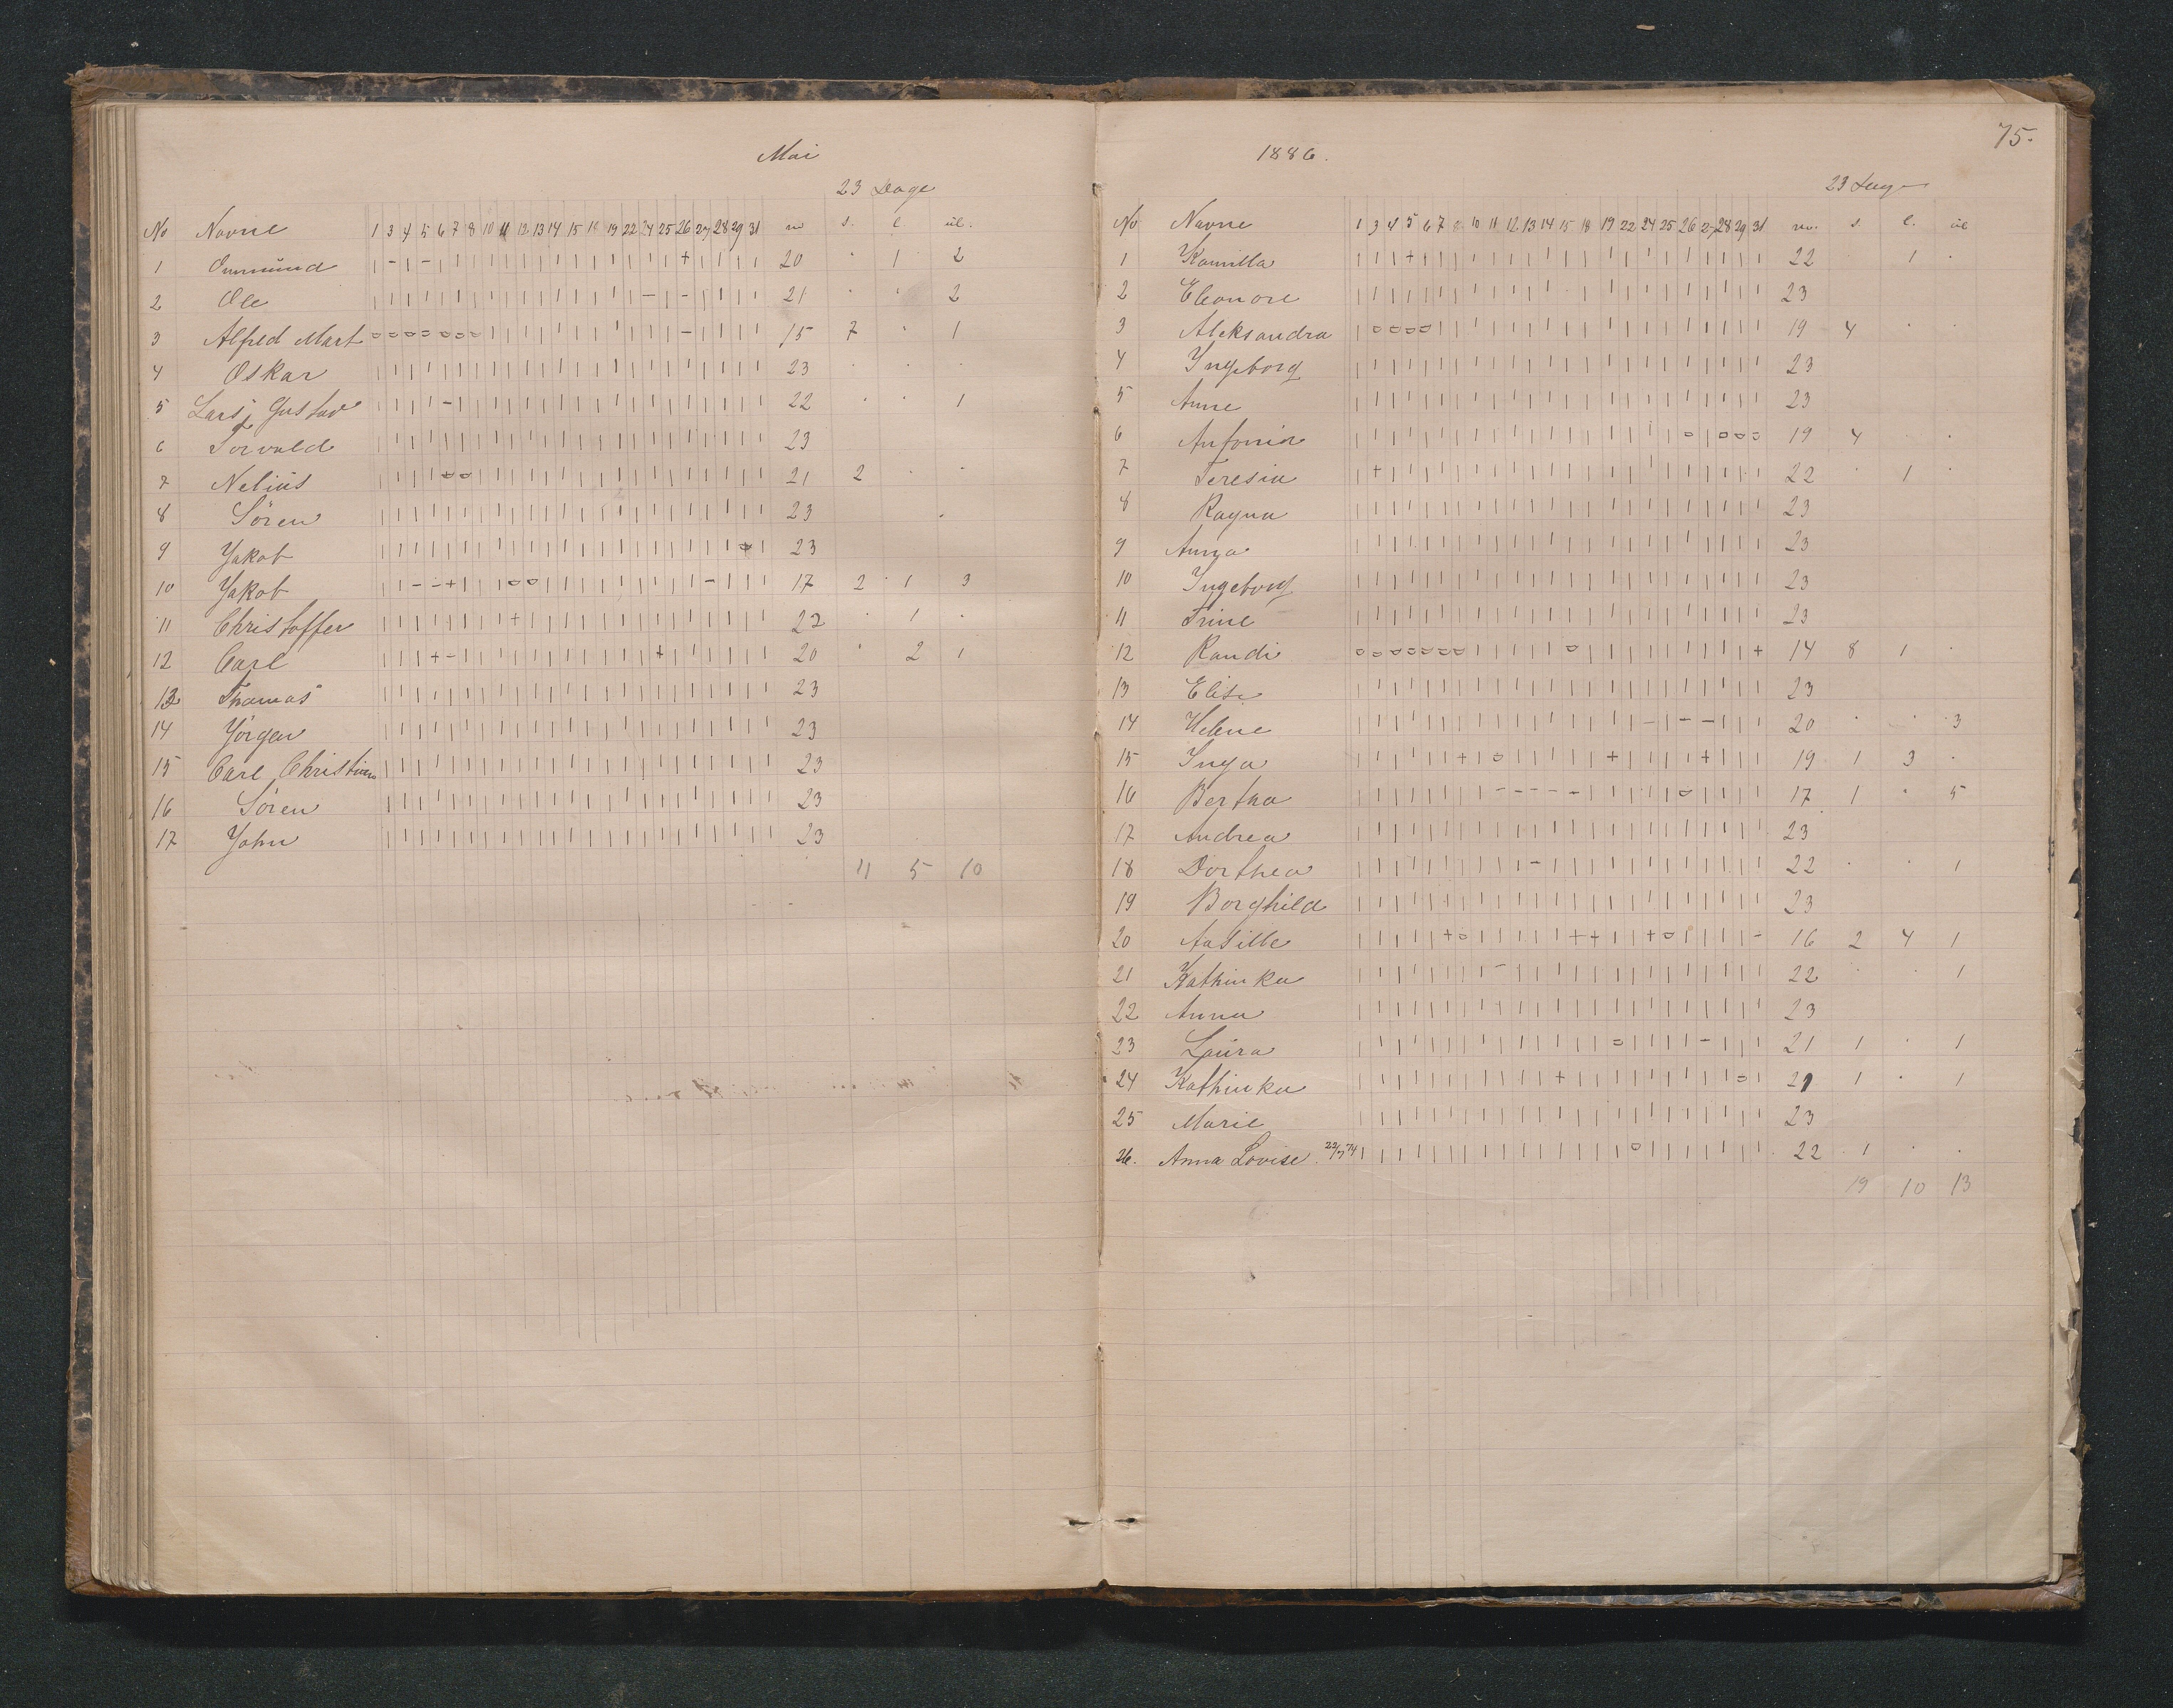 Mai
23 Dage
No Navne 1 3 4 5 6 7 8 10 11 12 13 14 15 18 19 22 24 25 26 27 28 29 31 m s. l ul.
1 Ommund | - | - | | | | | | | | | | | | | | + | | | | 20 · 1 2
2 Ole | | | | | | | | | | | | | | | | - | - | | | | 21 · · 2
3 Alfred Mart o o o o o o o | | | | | | | | | | | - | | | | 15 7 · 1
4 Oskar | | | | | | | | | | | | | | | | | | | | | | | 23 · · ·
5 Lars Gustav | | | | - | | | | | | | | | | | | | | | | | | 22 · · 1
6 Torvald | | | | | | | | | | | | | | | | | | | | | | | 23
7 Nelius | | | | o o | | | | | | | | | | | | | | | | | 21 2 · ·
8 Sören | | | | | | | | | | | | | | | | | | | | | | | 23
9 Yakob | | | | | | | | | | | | | | | | | | | | | | | 23
10 Yakob | | - - + | | | o o | | | | | | | | - | | | 17 2 1 3
11 Christoffer | | | | | | | + | | | | | | | | | | | | | | | 22 · 1 ·
12 Carl | | | + - | | | | | | | | | | | + | | | | | | 20 · 2 1
13 Thomas | | | | | | | | | | | | | | | | | | | | | | | 23
14 Yörgen | | | | | | | | | | | | | | | | | | | | | | | 23
15 Carl Christian | | | | | | | | | | | | | | | | | | | | | | | 23
16 Sören | | | | | | | | | | | | | | | | | | | | | | | 23
17 John | | | | | | | | | | | | | | | | | | | | | | | 23
11 5 10
75.
1886.
23 Dage
No Navne 1 3 4 5 6 7 8 10 11 12 13 14 15 18 19 22 24 25 26 27 28 29 31 m. s. l. ul
1 Kamilla | | | + | | | | | | | | | | | | | | | | | | | 22 1 ·
2 Eleonore | | | | | | | | | | | | | | | | | | | | | | | 23
3 Aleksandra | o o o o | | | | | | | | | | | | | | | | | | 19 4 · ·
4 Yngeborg | | | | | | | | | | | | | | | | | | | | | | | 23
5 Anne | | | | | | | | | | | | | | | | | | | | | | | 23
6 Antonia | | | | | | | | | | | | | | | | | | o | o o o 19 4 ·
7 Teresia | + | | | | | | | | | | | | | | | | | | | | | 22 · 1 ·
8 Ragna | | | | | | | | | | | | | | | | | | | | | | | 23
9 Anna | | | | | | | | | | | | | | | | | | | | | | | 23
10 Yngeborg | | | | | | | | | | | | | | | | | | | | | | | 23
11 Trine | | | | | | | | | | | | | | | | | | | | | | | 23
12 Randi o o o o o o o | | | | | o | | | | | | | | | + 14 8 1 ·
13 Elise | | | | | | | | | | | | | | | | | | | | | | | 23
14 Helene | | | | | | | | | | | | | | | | - | - - | | | 20 · · 3
15 Inga | | | | | | + | o | | | | | + | | | | + | | | 19 1 3 ·
16 Bertha | | | | | | | | - - - - - | | | | | o | | | | 17 1 · 5
17 Andrea | | | | | | | | | | | | | | | | | | | | | | | 23
18 Dorthea | | | | | | | | | | - | | | | | | | | | | | | 22 · · 1
19 Borghild | | | | | | | | | | | | | | | | | | | | | | | 23
20 | | | | | + o | | | | | + + | | + o | | | | - 16 2 4 1
21 Kathinka | | | | | | | | - | | | | | | | | | | | | | | 22 · · 1
22 Anna | | | | | | | | | | | | | | | | | | | | | | | 23
23 Laura | | | | | | | | | | | | | | o | | | | - | | | 21 1 · 1
24 Kathinka | | | | | | | | | | | + | | | | | | | | | o | 21 1 · 1
25 Marie | | | | | | | | | | | | | | | | | | | | | | | 23
26. Anna Lovise. 22/7 74 | | | | | | | | | | | | | | | o | | | | | | | 22 1 · ·
19 10 13